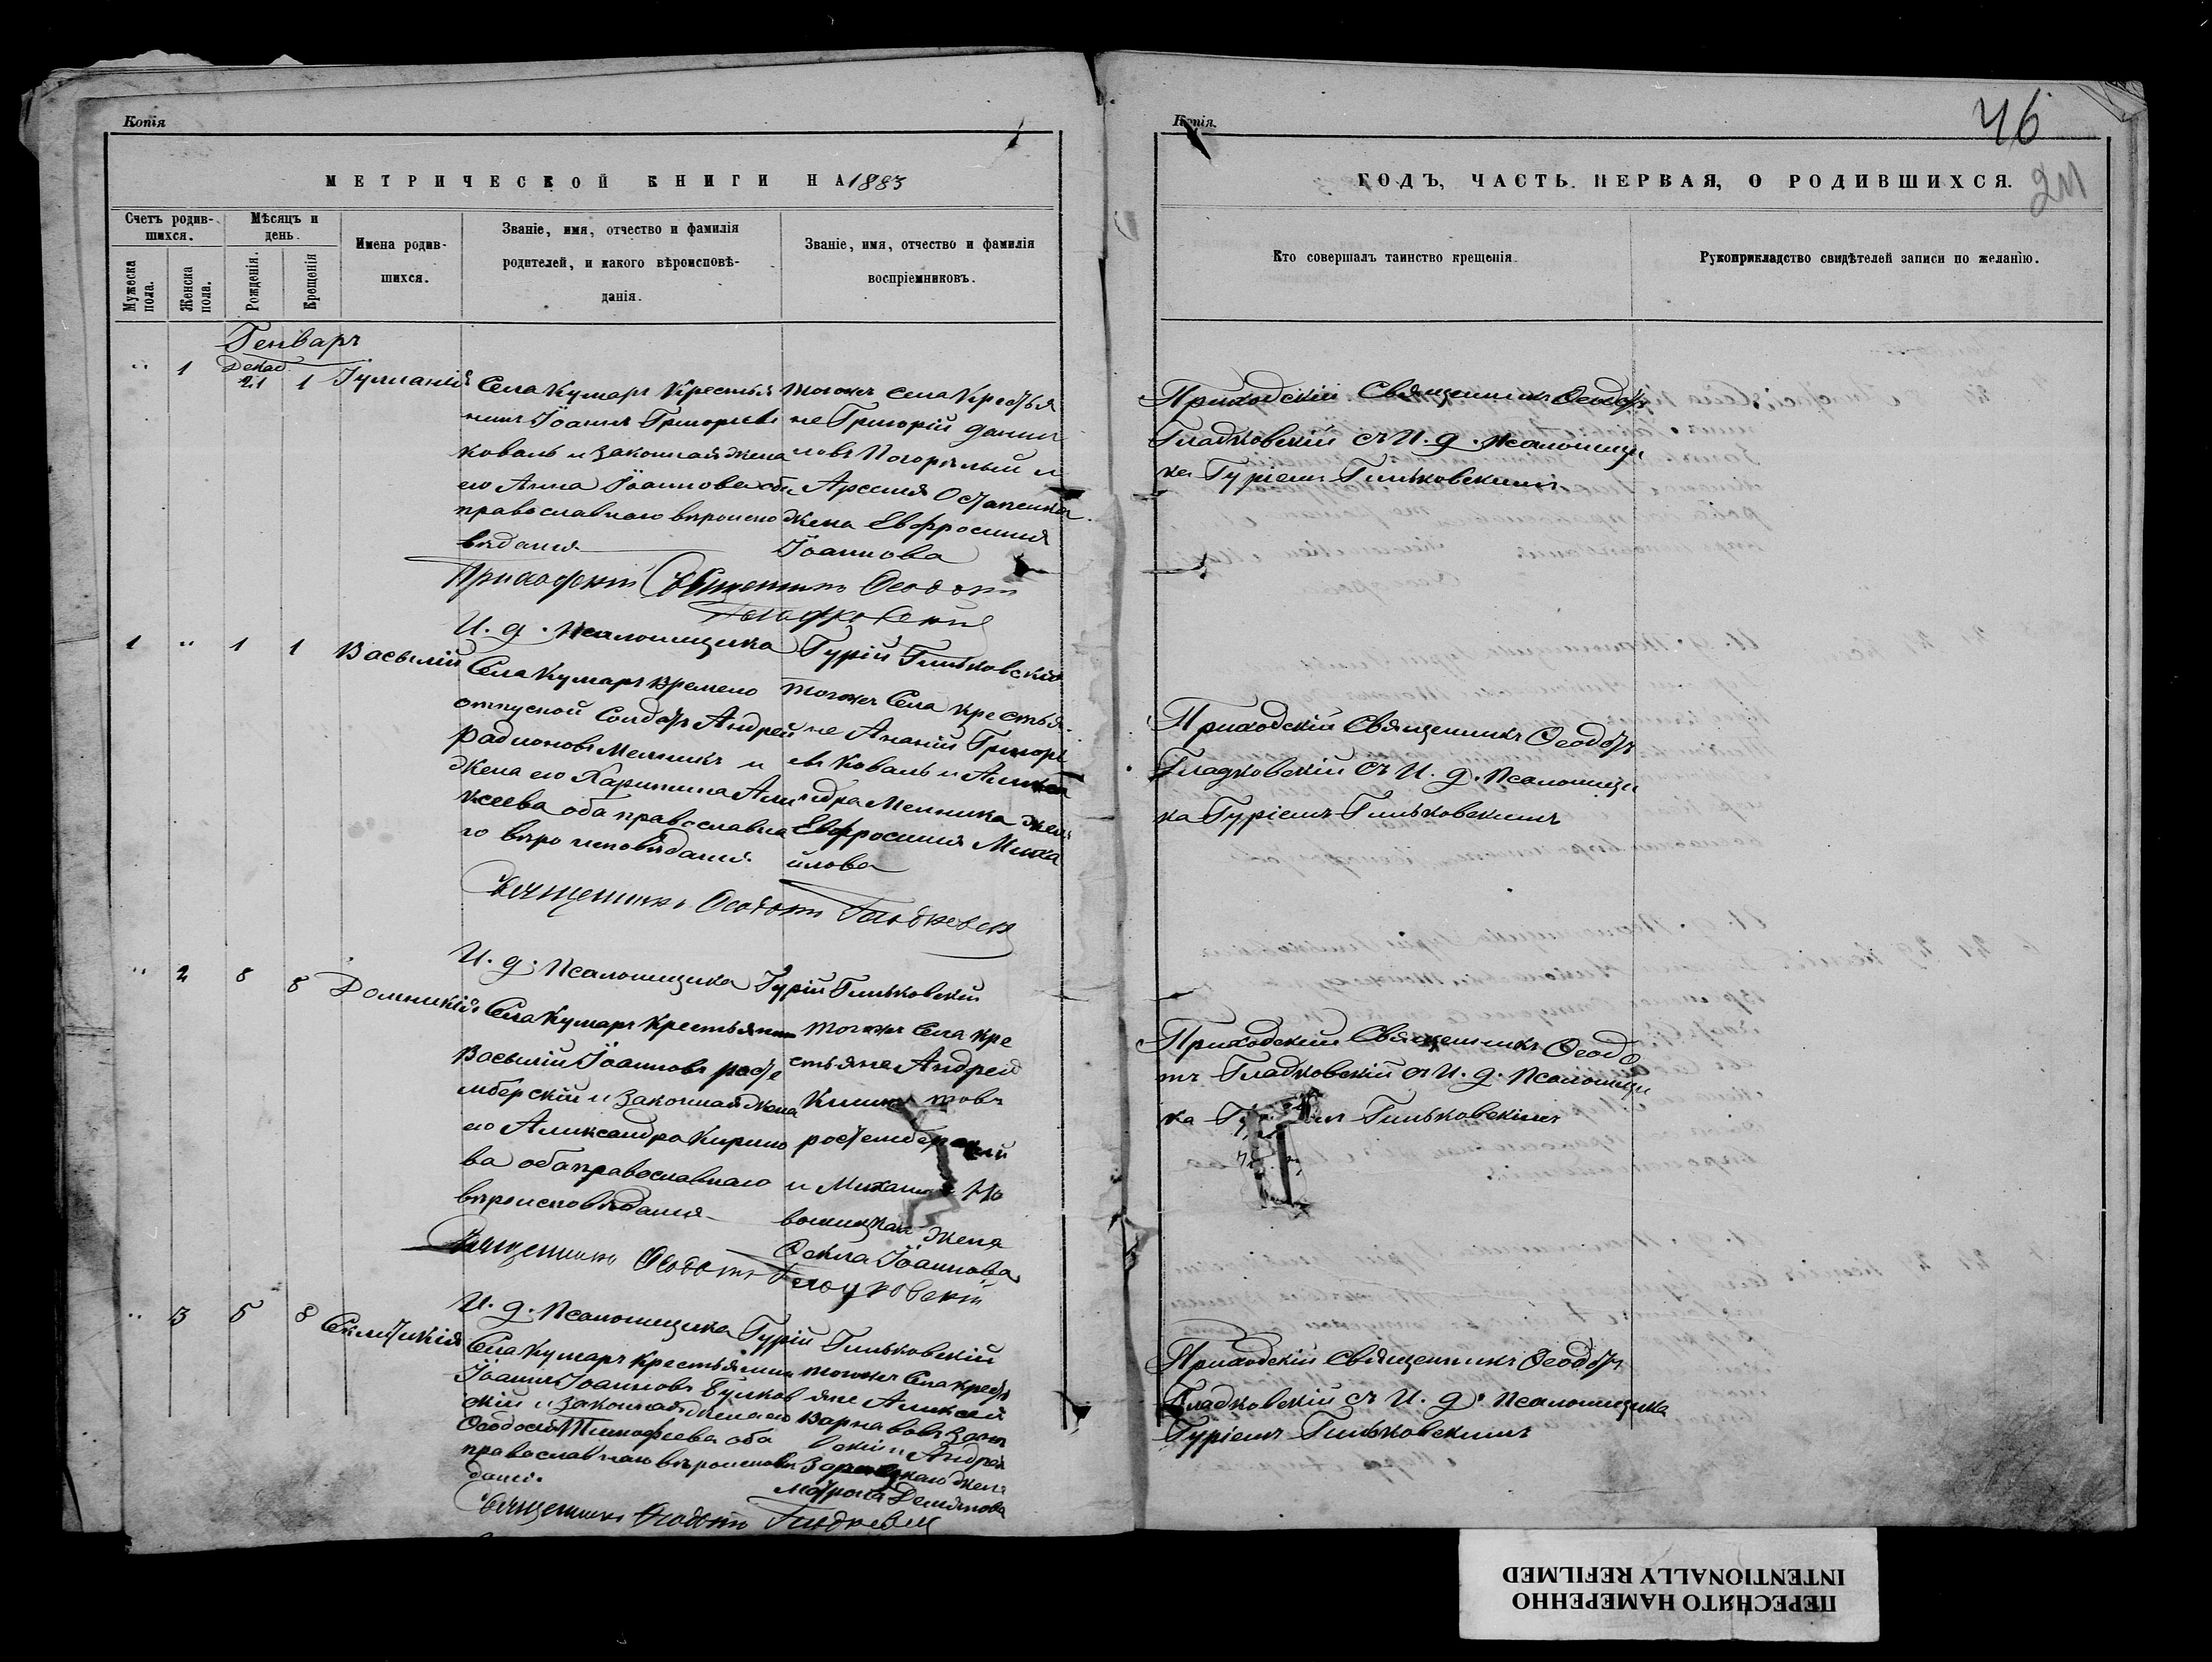 Копія
МЕТРИЧЕСКОЙ КНИГИ НА 1883
Счетъ родив-
шихся.
Мѣсяцъ и
день.
Имена родив-
шихся.
Званіе, имя, отчество и фамилія
родителей, и какого вѣроисповѣ-
данія.
Званіе, имя, отчество и фамилія
воспріемниковъ.
Мужеска
пола.
Женска
пола.
Рожденія.
Крещенія
Генварь
" 1 Декаб 21 1 Іулианія
Села Кумаръ Крестья
нинъ Іоаннъ Григорьев
коваль и законная жена
его Анна Іоаннова оба
православнаго вѣроиспо
вѣданія
тогожъ села Крестья
не Григорій Данил
овъ Погорѣлый и
Арсенія Остапенка
жена Евфросинія
Іоаннова
Приходскій Священникъ Ѳеодотъ
Гладковскій
И. д. псаломщика Гурій Гильковскій
1 " 1 1 Васылій
Села Кумаръ времено
отпускной Солдатъ Андрей
Радионовъ Мельникъ и
жена его Харитина Але
ксеева оба православна
го вѣроисповѣданія
тогожъ Села крестья
не Ананій Григорь
евъ Коваль и
Мельника жена
Евфросинія Миха
илова
Священникъ Ѳеодотъ Гладковск
И. д. Псаломщика Гурій Гильковскій
" 2 8 8 Домникія
Села Кумаръ Крестьянин
Васылій Іоанновъ
и законная жена
его Александра Кирило
ва оба православнаго
вѣроисповѣданія
тогожъ Села кре
стьяне Андрей
и
жена
Ѳекла Іоаннова
Священникъ Ѳеодотъ Гладковскій
И. д. Псаломщика Гурій Гильковскій
" 3 5 8
Села Кумаръ крестьянинъ
Іоаннъ Іоанновъ Булков
скій и законная жена его
Ѳеодосія Тимофеева оба
православнаго вѣроисповѣ
данія
тогожъ Села крест
яне Алексей
Андрея
жена
Матрона Демянова
Священникъ Ѳеодотъ
Копія.
46
ГОДЪ, ЧАСТЬ ПЕРВАЯ, О РОДИВШИХСЯ.
Кто совершалъ таинство крещенія.
Рукоприкладство свидѣтелей записи по желанію.
Приходскій Священникъ Ѳеодотъ
Гладковскій съ И. д. псаломщи
ка Гуріемъ Гильковскимъ
Приходскій Священникъ Ѳеодотъ
Гладковскій съ И. д. Псаломщи
ка Гуріемъ Гильковскимъ
Приходскій Священникъ Ѳеодо
тъ Гладковскій съ И. д. Псаломщи
ка Гильковскимъ
Приходскій Священникъ Ѳеодотъ
Гладковскій съ И. д. Псаломщика
Гуріемъ Гильковскимъ
ПЕРЕСНЯТО НАМЕРЕННО
INTENTIONALLY REFILMED